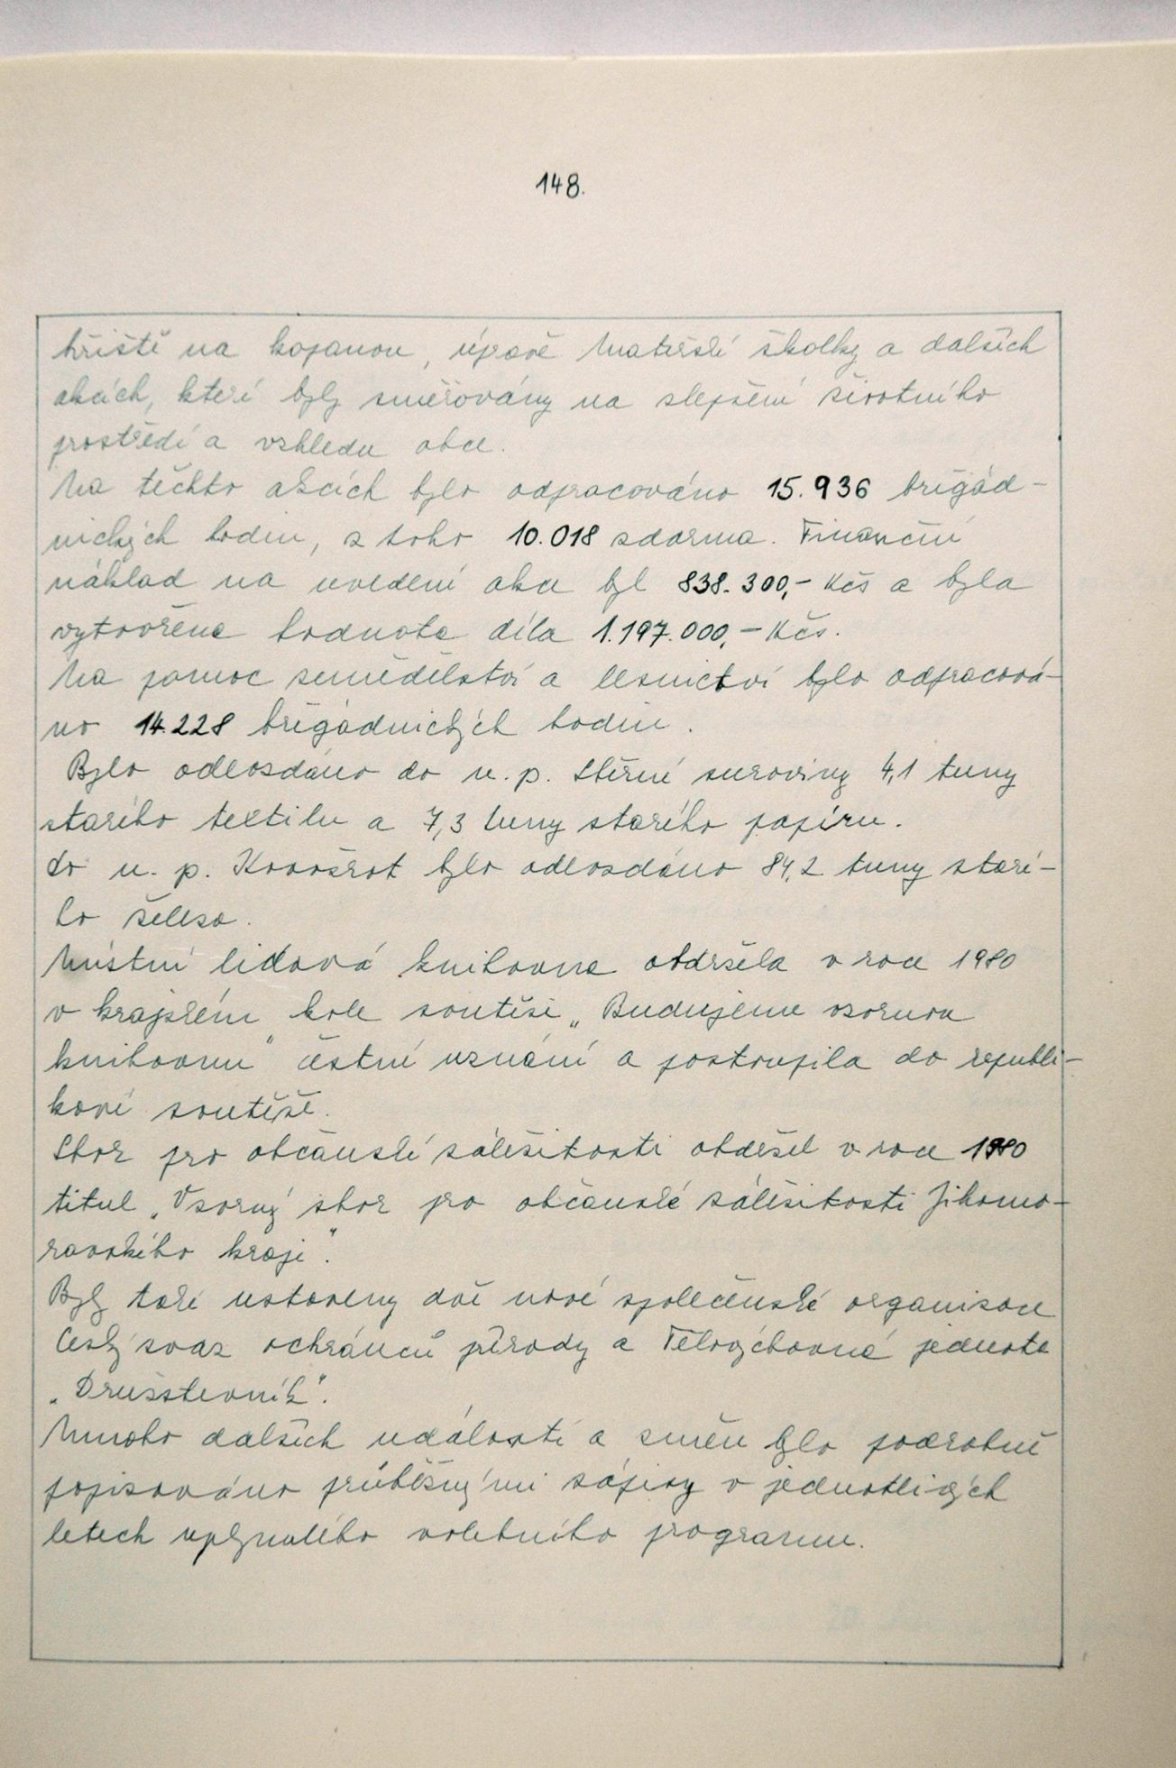 148.
hřiště na kopanou, úpravě Mateřské školky a dalších
akcích, které byly směřovány na zlepšení životního
prostředí a vzhledu obce.
Na těchto akcích bylo odpracováno 15.936 brigád-
nických hodin, z toho 10.018 zdarma. Finanční
náklad na uvedení akce byl 838.300,- Kčs a byla
vytvořena hodnota díla 1.197.000,- Kčs.
Na pomoc zemědělství a lesnictví bylo odpracová-
no 14.228 brigádnických hodin.
Bylo odevzdáno do n. p. Sběrné suroviny 4,1 tuny
starého textilu a 7,3 tuny starého papíru.
do n. p. Kovošrot bylo odevzdáno 84,2 tuny staré-
ho železa.
Místní lidová knihovna obdržela v roce 1980
v krajském kole soutěži „Budujeme vzornou
knihovnu" čestné uznání a postoupila do republi-
kové soutěže.
Sbor pro občanské záležitosti obdržel v roce 1980
titul „Vzorný sbor pro občanské záležitosti Jihomo-
ravského kraje".
Byly také ustaveny dvě nové společenské organizace
Český svaz ochránců přírody a Tělovýchovná jednota
„Družstevník".
Mnoho dalších událostí a změn bylo podrobně
popisováno průběžnými zápisy v jednotlivých
letech uplynulého volebního programu.